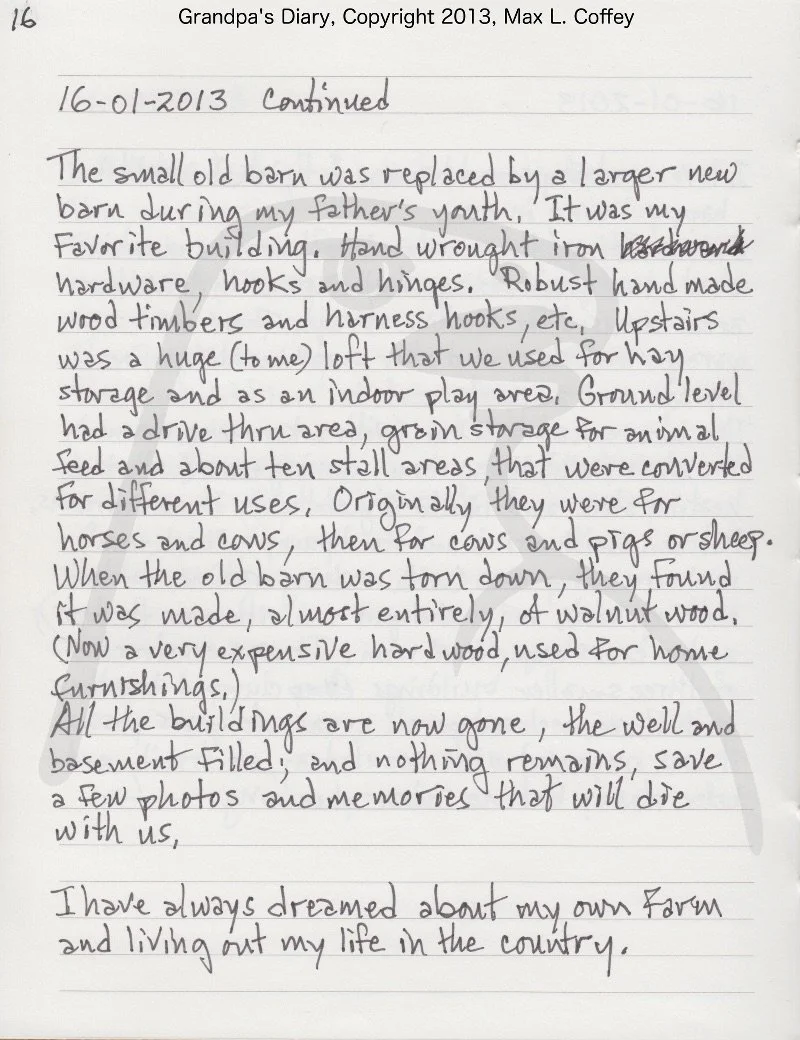 16
Grandpa's Diary, Copyright 2013, Max L. Coffey
16-01-2013 Continued
The small old barn was replaced by a larger new
barn during my father's youth. It was my
Favorite building. Hand wrought iron
hardware, hooks and hinges. Robust hand made
wood timbers and harness hooks, etc. Upstairs
was a huge (to me) loft that we used for hay
storage and as an indoor play area. Ground level
had a drive thru area, grain storage for animal
feed and about ten stall areas, that were converted
for different uses. Originally they were for
horses and cows, then for cows and pigs or sheep.
When the old barn was torn down, they found
it was made, almost entirely, of walnut wood.
(Now a very expensive hard wood, used for home
furnishings.)
All the buildings are now gone, the well and
basement filled; and nothing remains, save
a few photos and memories that will die
with us.
I have always dreamed about my own Farm
and living out my life in the country.